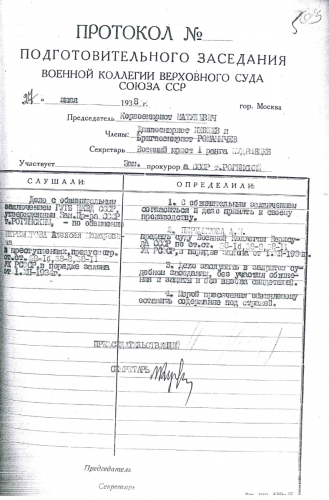 ПРОТОКОЛ №
ПОДГОТОВИТЕЛЬНОГО ЗАСЕДАНИЯ
ВОЕННОЙ КОЛЛЕГИИ ВЕРХОВНОГО СУДА
СОЮЗА ССР
" июля 1938 г. гор. Москва
Председатель Корвоенюрист МАТУЛЕВИЧ
Члены: Диввоенюрист и
Бригвоенюрист РОМАНЫЧЕВ
Секретарь Военный юрист 1 ранга
Участвует Зам. прокурора СССР т.РОГИНСКИЙ
СЛУШАЛИ: ОПРЕДЕЛИЛИ:
Дело с обвинительным
заключением ГУГБ НКВД СССР
утвержденным Зам.Пр-ра СССР
т.РОГИНСКИМ, - по обвинению
Алексея
в преступлениях, предусмотр.
ст.ст. 58-8, 58-11
УК РСФСР в порядке закона
от 1.XII-1934г.
1. С обвинительным заключением
согласиться и дело принять к своему
производству.
2. А.
предать суду Военной Коллегии Верхсуда
СССР по ст.ст. 58-8, 58-11
УК РСФСР, в порядке закона от 1.XII-1934г.
3. Дело заслушать в закрытом
судебном заседании, без участия обвинения
и защиты и без вызова свидетелей.
4. Мерой пресечения обвиняемому
оставить содержание под стражей.
ПРЕДСЕДАТЕЛЬСТВУЮЩИЙ
СЕКРЕТАРЬ
Председатель
Секретарь